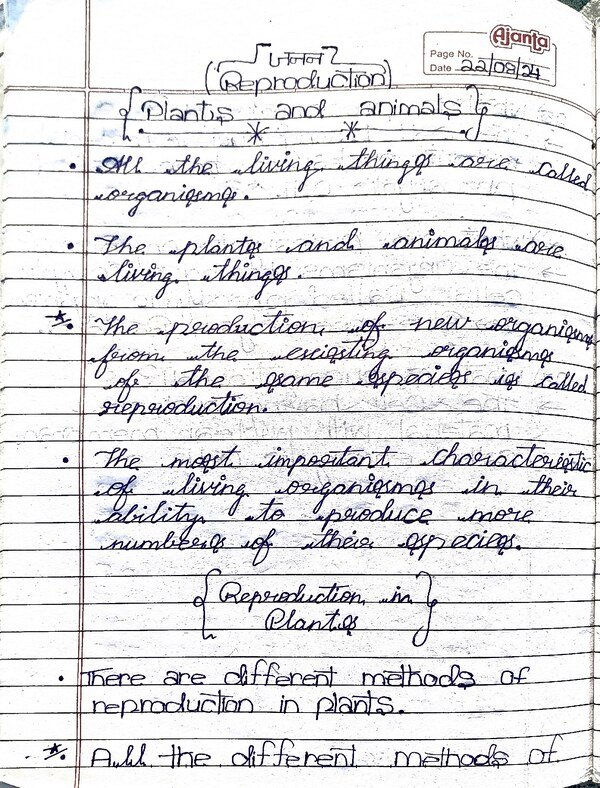 Ajanta
Page No.
Date 22/08/24
जनन
(Reproduction)
{Plants and animals}
• All the living things are called
organisms.
• The plants and animals are
living things.
*. The production of new organisms
from the exicisting organisms
of the same species is called
reproduction.
• The most important characteristic
of living organisms in their
ability to produce more
numbers of their species.
{Reproduction in
Plants}
• There are different methods of
reproduction in plants.
*. All the different methods of